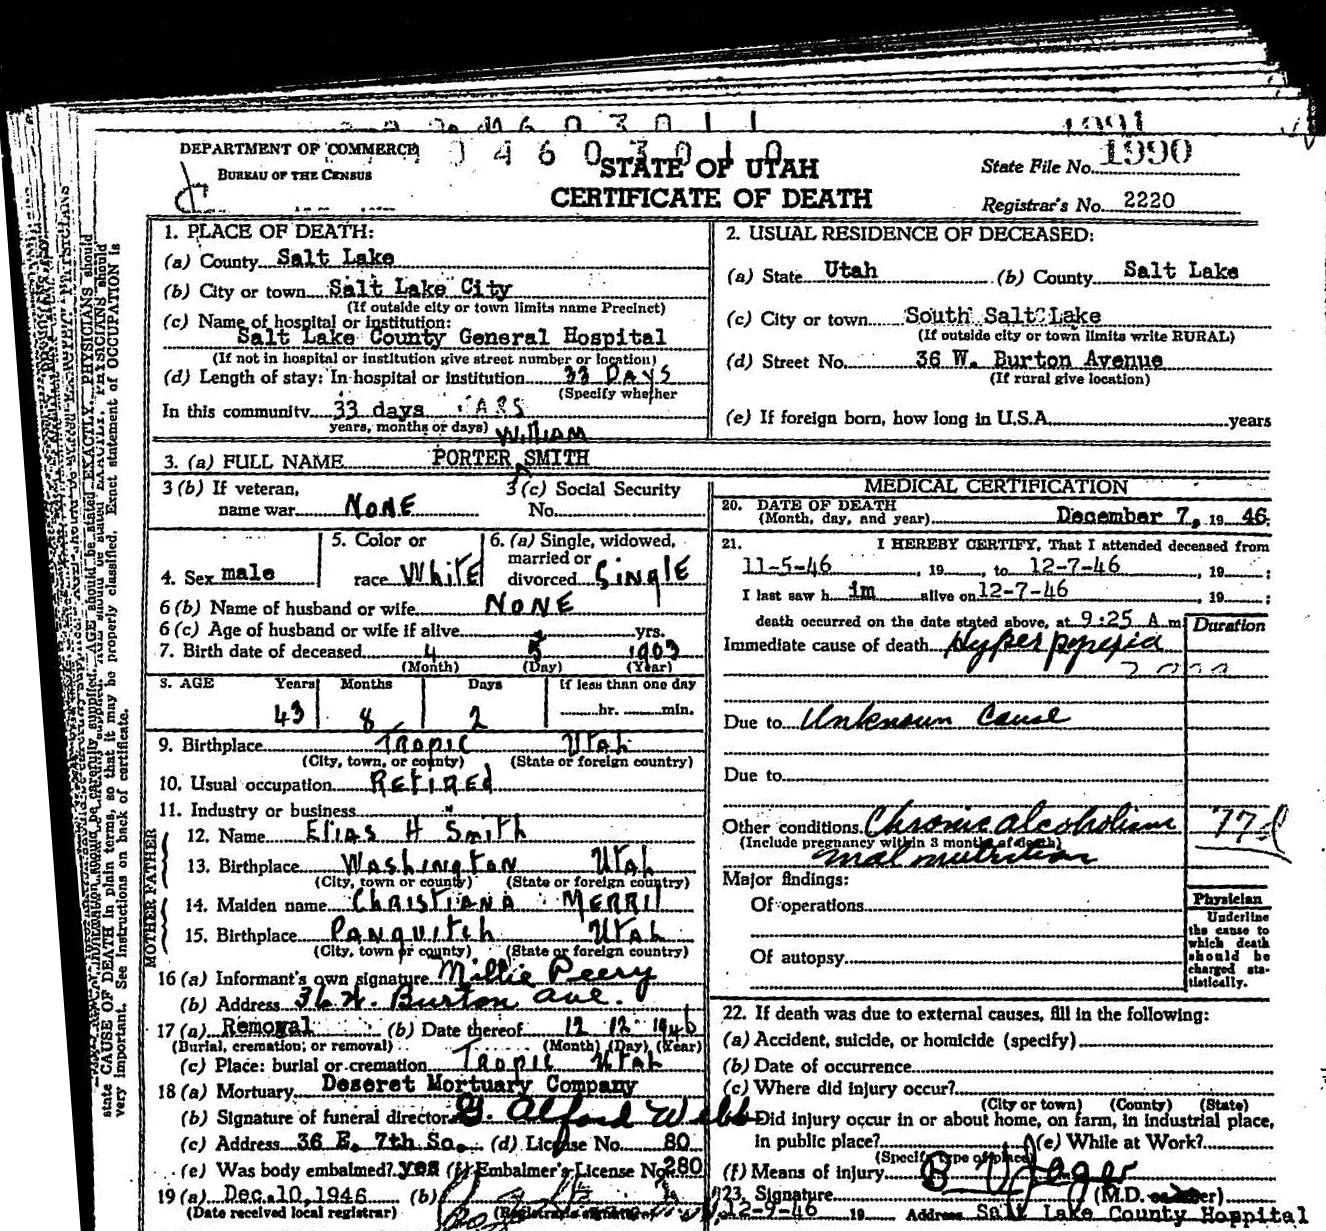 DEPARTMENT OF COMMERCE
BUREAU OF THE CENSUS
STATE OF UTAH
CERTIFICATE OF DEATH
State File No. 1990
Registrar's No. 2220
1. PLACE OF DEATH:
(a) County Salt Lake
(b) City or town Salt Lake City
(If outside city or town limits name Precinct)
(c) Name of hospital or institution:
Salt Lake County General Hospital
(If not in hospital or institution give street number or location)
(d) Length of stay: In hospital or institution 33 DAYS
(Specify whether
In this community 33 days
years, months or days)
2. USUAL RESIDENCE OF DECEASED:
(a) State Utah (b) County Salt Lake
(c) City or town South Salt Lake
(If outside city or town limits write RURAL)
(d) Street No. 36 W. Burton Avenue
(If rural give location)
(e) If foreign born, how long in U.S.A. years
WILLIAM
3. (a) FULL NAME PORTER SMITH
3 (b) If veteran, name war NONE
3 (c) Social Security No.
4. Sex male
5. Color or race WHITE
6. (a) Single, widowed, married or divorced SINGLE
6 (b) Name of husband or wife NONE
6 (c) Age of husband or wife if alive yrs.
7. Birth date of deceased 4 5 1903
(Month) (Day) (Year)
8. AGE Years Months Days If less than one day
43 8 2 hr. min.
9. Birthplace TROPIC UTAH
(City, town, or county) (State or foreign country)
10. Usual occupation RETIRED
11. Industry or business
FATHER
12. Name ELIAS H SMITH
13. Birthplace WASHINGTON UTAH
(City, town or county) (State or foreign country)
MOTHER
14. Maiden name CHRISTIANA MERRIL
15. Birthplace PANQUITCH UTAH
(City, town or county) (State or foreign country)
16 (a) Informant's own signature Millie Peery
(b) Address 36 W. Burton Ave.
17 (a) Removal (b) Date thereof 12 12 1946
(Burial, cremation, or removal) (Month) (Day) (Year)
(c) Place: burial or cremation TROPIC UTAH
18 (a) Mortuary Deseret Mortuary Company
(b) Signature of funeral director G. Alford Webb
(c) Address 36 E. 7th So. (d) License No. 80
(e) Was body embalmed? yes (f) Embalmer's License No. 280
19 (a) Dec. 10, 1946 (b)
(Date received local registrar) (Registrar's signature)
MEDICAL CERTIFICATION
20. DATE OF DEATH
(Month, day, and year) December 7, 1946.
21. I HEREBY CERTIFY, That I attended deceased from
11-5-46, 19 , to 12-7-46, 19 ;
I last saw h im alive on 12-7-46, 19 ;
death occurred on the date stated above, at 9:25 A m
Duration
Immediate cause of death Hyperpyrexia
Due to Unknown Cause
Due to
Other conditions Chronic alcoholism 77d
(Include pregnancy within 3 months of death)
Malnutrition
Major findings:
Of operations
Of autopsy
Physician
Underline the cause to which death should be charged statistically.
22. If death was due to external causes, fill in the following:
(a) Accident, suicide, or homicide (specify)
(b) Date of occurrence
(c) Where did injury occur?
(City or town) (County) (State)
Did injury occur in or about home, on farm, in industrial place,
in public place? (e) While at Work?
(Specify type of place)
(f) Means of injury
23. Signature (M.D. or other)
12-9-46 19 Address Salt Lake County Hospital
state CAUSE OF DEATH in plain terms, so that it may be properly classified. Exact statement of OCCUPATION is
very important. See instructions on back of certificate.